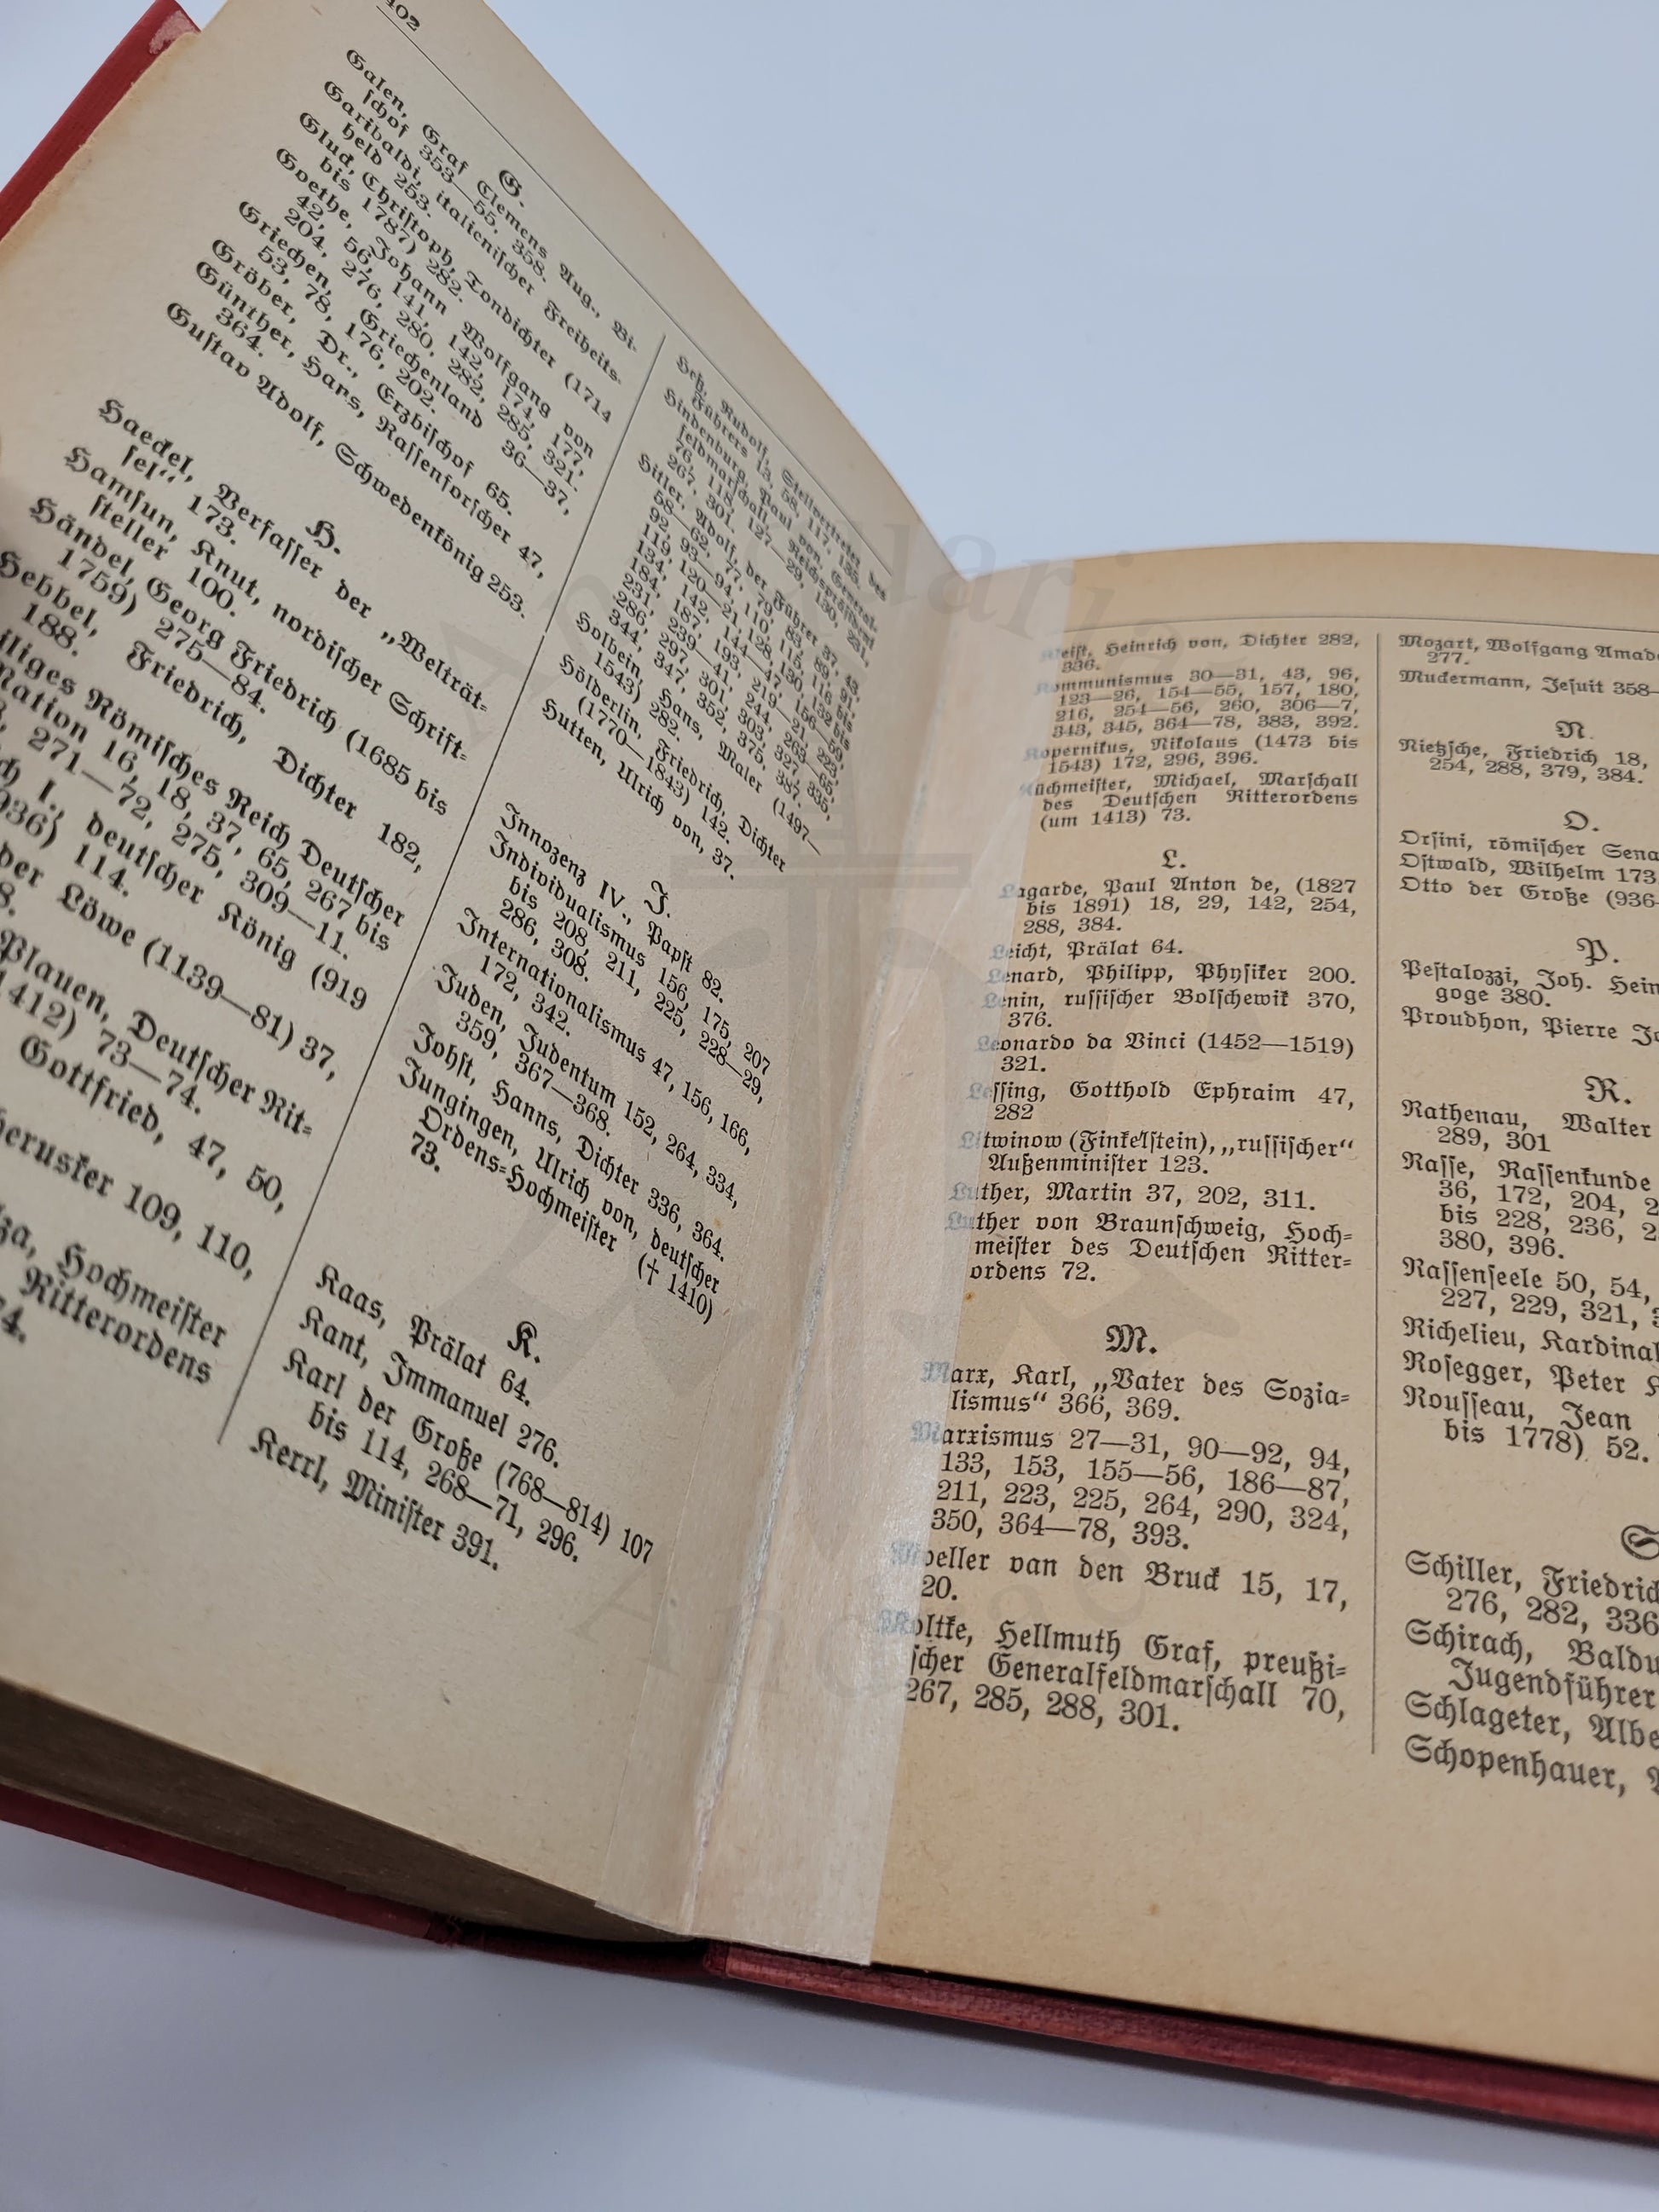 402
G.
Galen, Graf Clemens Aug., Bi-
schof 353—55, 358.
Garibaldi, italienischer Freiheits-
held 253.
Gluck, Christoph, Tondichter (1714
bis 1787) 282.
Goethe, Johann Wolfgang von
42, 56, 141, 142, 174, 177,
204, 276, 280, 282, 285, 321.
Griechen, Griechenland 36—37,
53, 78, 176, 202.
Gröber, Dr., Erzbischof 65.
Günther, Hans, Rassenforscher 47,
364.
Gustav Adolf, Schwedenkönig 253.
H.
Haeckel, Verfasser der „Welträt-
sel“ 173.
Hamsun, Knut, nordischer Schrift-
steller 100.
Händel, Georg Friedrich (1685 bis
1759) 275—84.
Hebbel, Friedrich, Dichter 182,
188.
Römisches Reich Deutscher
Nation 16, 18, 37, 65, 267 bis
271—72, 275, 309—11.
I., deutscher König (919
936) 114.
der Löwe (1139—81) 37,
Plauen, Deutscher Rit-
1412) 73—74.
Gottfried, 47, 50,
109, 110,
Hochmeister
Ritterordens
Heß, Rudolf, Stellvertreter des
Führers 13, 58, 117, 135.
Hindenburg, Paul von, General-
feldmarschall, Reichspräsident
76, 118, 127—29, 130, 231,
267, 301.
Hitler, Adolf, der Führer, 37, 43,
58—62, 77, 79, 83, 89, 91,
92, 93—94, 110, 115, 116 bis
119, 120—21, 128, 130, 132 bis
134, 142, 144—47, 156—59,
184, 187, 193, 219—21, 223,
231, 239—41, 244, 263—65,
286, 297, 301, 303, 327, 335,
344, 347, 352, 375, 387.
Holbein, Hans, Maler (1497—
1543) 282.
Hölderlin, Friedrich, Dichter
(1770—1843) 142.
Hutten, Ulrich von, 37.
J.
Innozenz IV., Papst 82.
Individualismus 156, 175, 207
bis 208, 211, 225, 228—29,
286, 308.
Internationalismus 47, 156, 166,
172, 342.
Juden, Judentum 152, 264, 334,
359, 367—368.
Johst, Hanns, Dichter 336, 364.
Jungingen, Ulrich von, deutscher
Ordens-Hochmeister († 1410)
73.
K.
Kaas, Prälat 64.
Kant, Immanuel 276.
Karl der Große (768—814) 107
bis 114, 268—71, 296.
Kerrl, Minister 391.
Kleist, Heinrich von, Dichter 282,
336.
Kommunismus 30—31, 43, 96,
123—26, 154—55, 157, 180,
216, 254—56, 260, 306—7,
343, 345, 364—78, 383, 392.
Kopernikus, Nikolaus (1473 bis
1543) 172, 296, 396.
Küchmeister, Michael, Marschall
des Deutschen Ritterordens
(um 1413) 73.
L.
Lagarde, Paul Anton de, (1827
bis 1891) 18, 29, 142, 254,
288, 384.
Leicht, Prälat 64.
Lenard, Philipp, Physiker 200.
Lenin, russischer Bolschewik 370,
376.
Leonardo da Vinci (1452—1519)
321.
Lessing, Gotthold Ephraim 47,
282
Litwinow (Finkelstein), „russischer“
Außenminister 123.
Luther, Martin 37, 202, 311.
Luther von Braunschweig, Hoch-
meister des Deutschen Ritter-
ordens 72.
M.
Marx, Karl, „Vater des Sozia-
lismus“ 366, 369.
Marxismus 27—31, 90—92, 94,
133, 153, 155—56, 186—87,
211, 223, 225, 264, 290, 324,
350, 364—78, 393.
Moeller van den Bruck 15, 17,
20.
Moltke, Hellmuth Graf, preußi-
scher Generalfeldmarschall 70,
267, 285, 288, 301.
Mozart, Wolfgang
277.
Muckermann, Jesuit 358—
N.
Nietzsche, Friedrich 18,
254, 288, 379, 384.
O.
Orsini, römischer
Ostwald, Wilhelm 173
Otto der Große (936—
P.
Pestalozzi, Joh.
goge 380.
Proudhon, Pierre
R.
Rathenau, Walter
289, 301
Rasse, Rassenkunde
36, 172, 204,
bis 228, 236,
380, 396.
Rassenseele 50, 54,
227, 229, 321,
Richelieu, Kardinal
Rosegger, Peter
Rousseau, Jean
bis 1778) 52.
S
Schiller, Friedrich
276, 282, 336
Schirach,
Jugendführer
Schlageter,
Schopenhauer,